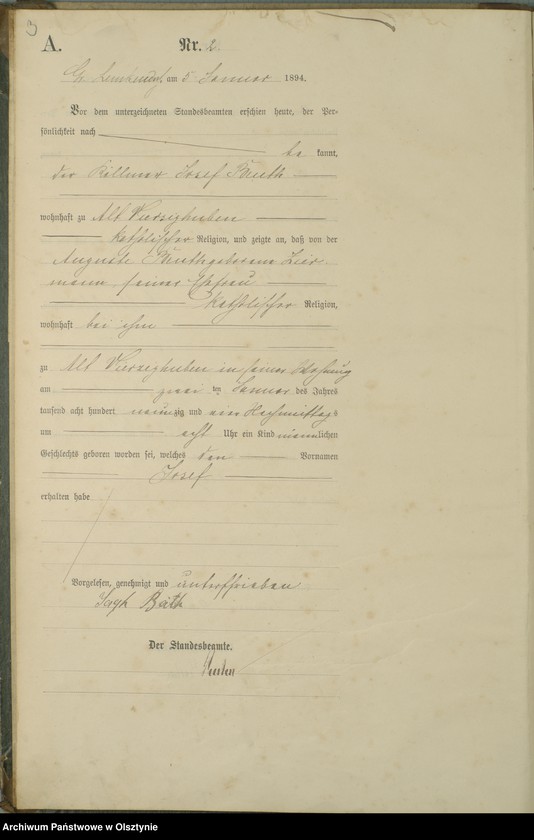 3
A. Nr. 2.
am 5 Januar 1894.
Vor dem unterzeichneten Standesbeamten erschien heute, der Per-
sönlichkeit nach
be kannt,
der Josef
wohnhaft zu Alt Vierzighuben
katholischer Religion, und zeigte an, daß von der
Auguste geborene Zier-
mann seiner Ehefrau
katholischer Religion,
wohnhaft bei ihm
zu Alt Vierzighuben in seiner Wohnung
am zwei ten Januar des Jahres
tausend acht hundert neunzig und vier Nachmittags
um acht Uhr ein Kind männlichen
Geschlechts geboren worden sei, welches den Vornamen
Josef
erhalten habe
Vorgelesen, genehmigt und unterschrieben
Der Standesbeamte.
Archiwum Państwowe w Olsztynie